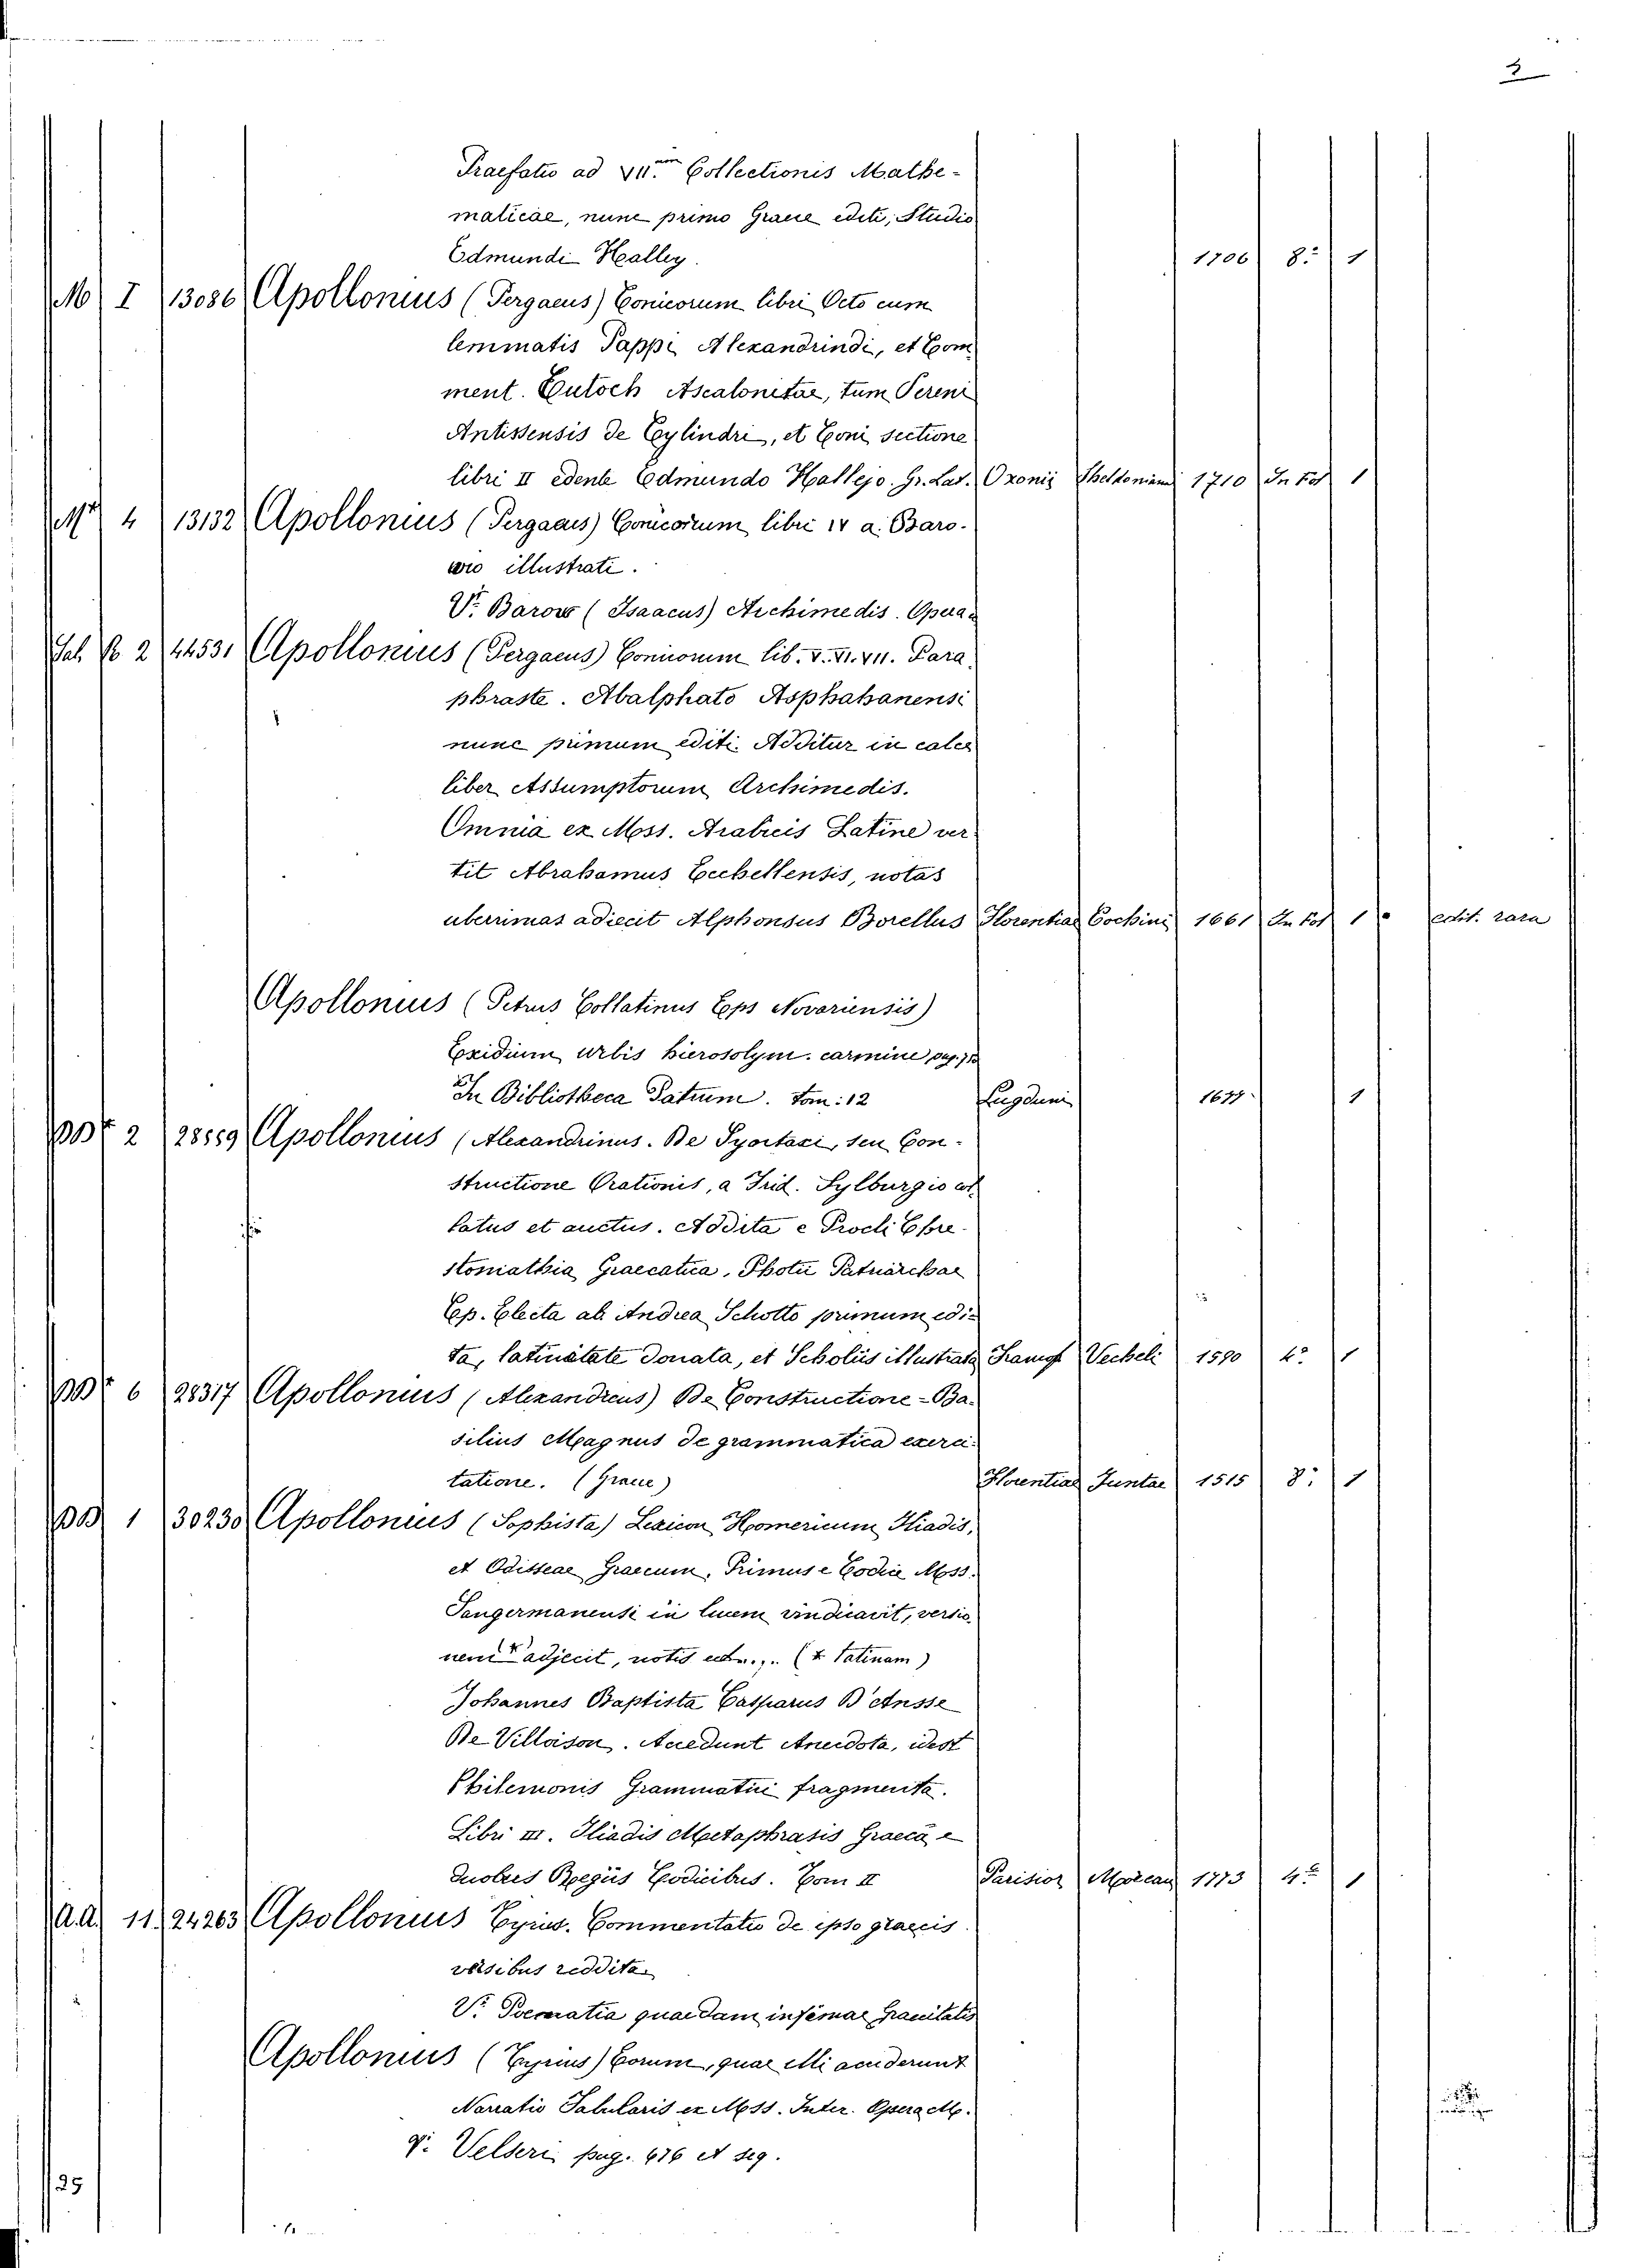 2
Praefatio ad VII.am Collectionis Mathe-
maticae, nunc primo Graece editi, Studio
Edmundi Halley. 1706 8.° 1
M I 13086 Apollonius (Pergaeus) Conicorum libri Octo cum
lemmatis Pappi Alexandrindi, et Com
ment. Eutoch Ascalonitae, tum Sereni
Antissensis de Cylindri, et Coni sectione
libri II edente Edmundo Hallejo. Gr. Lat. Oxonii Sheldoniani 1710 In Fol 1
4 13132 Apollonius (Pergaeus) Conicorum libri IV a. Baro-
wio illustrati.
V. Barow (Isaacus) Archimedis. Opera
2 44531 Apollonius (Pergaeus) Conicorum lib. V. VI. VII. Para
phraste. Abalphato Asphahanensi
nunc primum editi. Additur in calce
liber Assumptorum Archimedis.
Omnia ex Mss. Arabicis Latine ver
tit Abrahamus Ecchellensis, notas
uberrimas adiecit Alphonsus Borellus Florentiae Cochini 1661 In Fol 1 edit. rara
Apollonius (Petrus Collatinus Eps Novariensis)
Exidium urbis hierosolym. carmine pag.
In Bibliotheca Patrum. Tom: 12 Lugduni 1677. 1
2 28559 Apollonius (Alexandrinus. De Syortaxi, seu Con-
structione Orationis, a Frid. Sylburgio col
latus et auctus. Addita e Procli Chre-
stomathia Graecatica, Photii Patriarchae
Cp. Electa ab Andrea Schotto primum edi-
ta, latinitate donata, et Scholiis illustrata Francf Vecheli 1590 4° 1
6 28317 Apollonius (Alexandreus) De Constructione - Ba-
silius Magnus de grammatica exerci-
tatione. (Graece) Florentiae Juntae 1515 8° 1
1 30230 Apollonius (Sophista) Lexicon Homericum Iliadis,
et Odisseae Graecum, Primus e Codice Mss.
Sangermanensi in lucem vindicavit, versio
nem adjecit, notis (+ latinam)
Johannes Baptista Casparus D'Ansse
De Villoison. Accedunt Anecdota, idest
Philemonis Grammatici fragmenta.
Libri III. Iliadis Metaphrasis Graeca e
duobus Regiis Codicibus. Tom II Parisior Moreau 1773 4° 1
A.A. 11 24263 Apollonius Tyrius. Commentatio de ipso graecis
versibus reddita
V. Poematia quaedam infimae Graecitatis
Apollonius (Tyrius) Eorum, quae illi acciderunt
Narratio Fabularis ex Mss. Inter Opera M.
V. Velseri pag. 676 et seq.
25